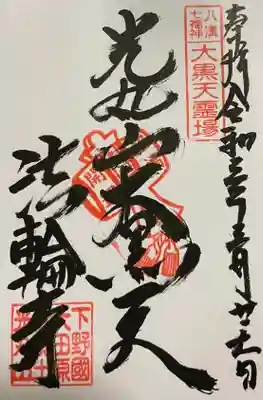 奉拝 令和三年三月
八溝
七福神
大黒天霊場
光丸山大黒天
法輪寺
下野國
大田原